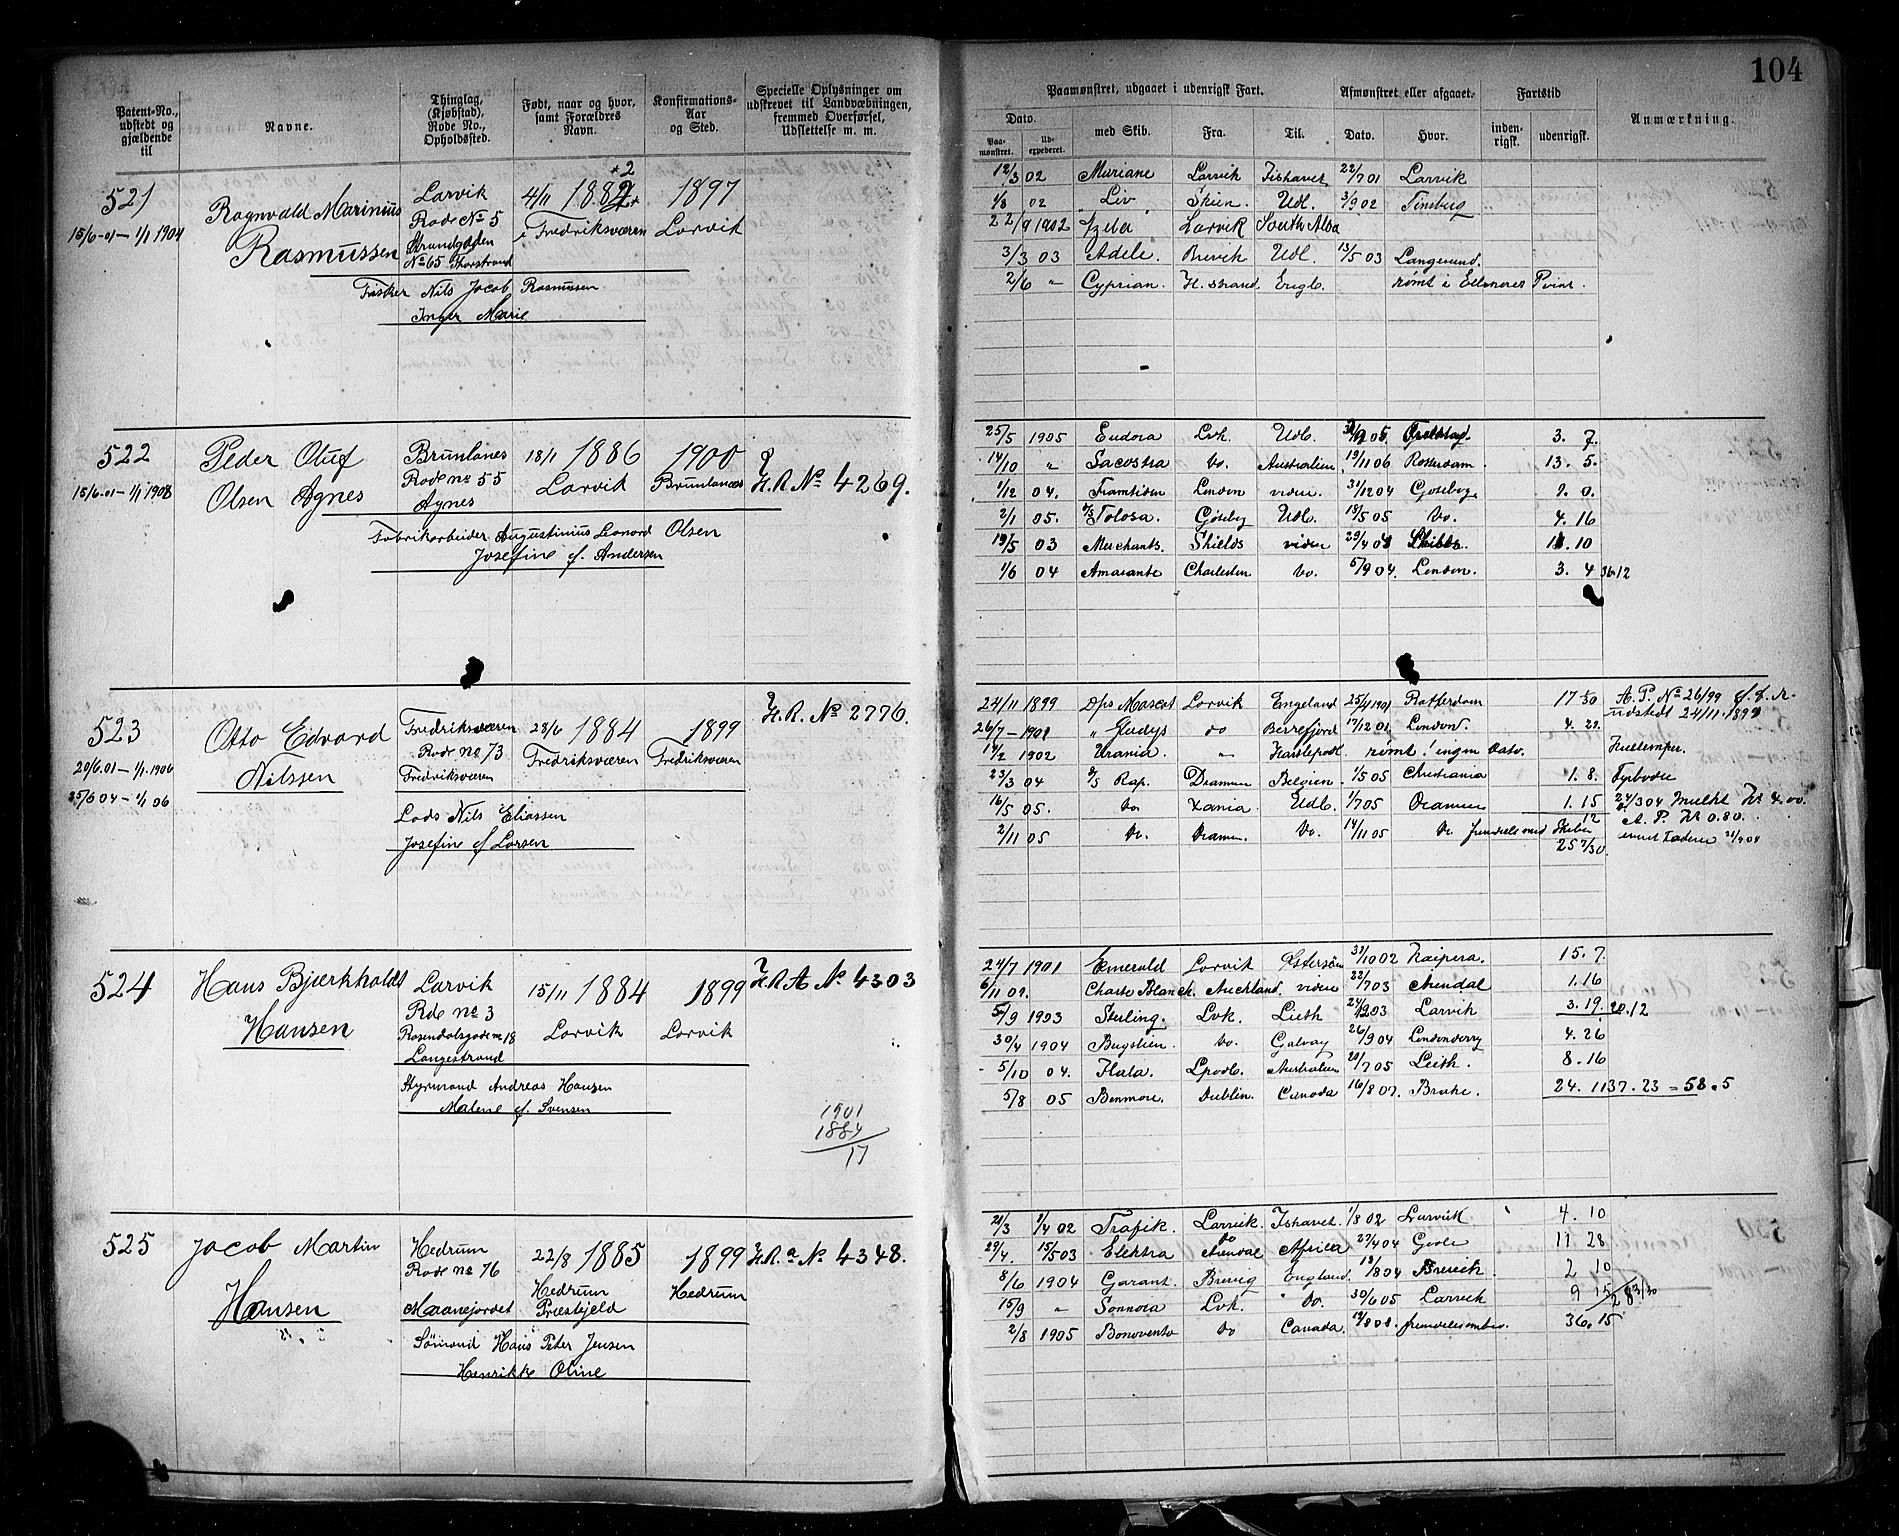 104
Patent-No., udstedt og gjældende til
Navne.
Thinglag, (Kjøbstad), Rode No., Opholdssted.
Født, naar og hvor, samt Forældres Navn.
Konfirmations-Aar og Sted.
Specielle Oplysninger om udskrevet til Landværbningen, fremmed Overførsel, Udslettelse m. m.
Paamønstret, udgaaet i udenrigsk Fart.
Dato.
Paa-mønstret.
Ud-expederet.
med Skib.
Fra.
Til.
Afmønstret eller afgaaet.
Dato.
Hvor.
Fartstid
inden-rigsk.
udenrigsk.
Anmærkning.
521 Larvik 4/11 1882 1897
Ragnvald Marinius Rode No 5 i Fredriksværen Larvik
15/6-01 — 1/1 1904 Strandgaden
Rasmussen No 65 Thorstrand
Fisker Nils Jacob Rasmussen
Inger Marie
12/3 02 Mariane Larvik Ishavet 22/7 01 Larvik
1/8 02 Liv Skien Udl. 3/9 02 Tønsberg
22/9 1902 Larvik South
3/3 03 Adele. Brevik Udl. 13/5 03 Langesund.
2/6 " Cyprian. H.strand. Engl. rømt i
522 Peder Oluf Brunlanes 18/1 1886 1900
15/6-01 — 1/1 1908 Olsen Agnes Rode no 55 Larvik Brunlanæs H.R. No 4269.
Agnes
Fabrikarbeider Augustinius Leonard Olsen
Josefine f. Andersen
25/5 1905 Eudora Lvk. Udl. 05 3. 7.
14/10 " Sacostra do. Australien 19/11 06 Rotterdam 13. 5.
1/12 04. Framtiden London viden 31/12 04 Goteborg
2/1 05. S/S Tolosa. Goteborg Udl. 18/5 05 Do. 4. 16
19/5 03 Merchants. Shields viden 29/4 10
1/6 04 Amarante Charleston Do. 5/9 04. London. 3. 4 36.12
523 Otto Edvard Fredriksværen 28/6 1884 1899 H.R. No 2776.
20/6.01 — 1/1.1906 Nilssen Rode no 73 Fredriksværen Fredriksværen
25/6 04 — 1/1 06 Fredriksværen
Lods Nils Eliassen
Josefine f Larsen
24/11 1899 D/s Mascot Larvik England 25/4 1901 Rotterdam 17 A. P. No 26/99 udstedt 24/11. 1899
26/7 — 1901 " Gladys do Berrefjord 17/12 01 London. 4. 22.
14/2 1902 Urania. " Hartlepool rømt! ingen Dato.
23/3 04 S/S Rap. Dramen Belgien 1/5 05 Christiania 1. 8.
16/5 05. do Xania. Udl. 1/7 05 Dramen 1. 15 24/3 04 Mulkt Kr 4.00.
2/11 05 Do. Dramen. Do. 14/11 05 Do 12 A. P. Kr 0.80.
524 Hans Bjerkholdt Larvik 15/11 1884 1899 H.R.A No. 4303
Hansen Rode no 3 Larvik Larvik
Rosendalsgade no 18
Langestrand
Styrmand Andreas Hansen
Malene f. Svensen
1901
1884
17
24/7 1901 Emerald Larvik Østersøen 31/10 02 15. 7
6/11 02. Charte Blanch. Auckland. viden 22/7 03 Arendal 1.16
5/9 1903 Sterling. Lvk. Lieth Larvik 3. 19. 20.12
30/4 1904 Do. Galvay 26/9 04 Londonderry 4. 26
5/10 04. Lpool. Australien 20/7 05 Leith. 8. 16
5/8 05 Benmore. Dublin. Canada 16/8 07. Brake. 24. 11 37. 23 = 58.5
525 Jacob Martin Hedrum 22/8 1885 1899 H.R.a No 4348.
Hansen Rode no 76 Hedrum Hedrum
Maanejordet Præstgjeld
Sømand Hans Peter Jensen
Henrikke Oline
21/3 1/4 02 Trafik. Larvik. Ishavet. 1/8 02 Larvik 4. 10
29/4. 15/5 03 Elektra Arendal Africa 27/4 04 Goole 11 28
8/6 1904 Garant. Brevig England. 18/8 04 Brevick. 2 10
15/9 " Sonnoia Lvk. Do. 30/6 05 Larvik 9 15
2/8 1905 Bonovento do Canada. 36. 15